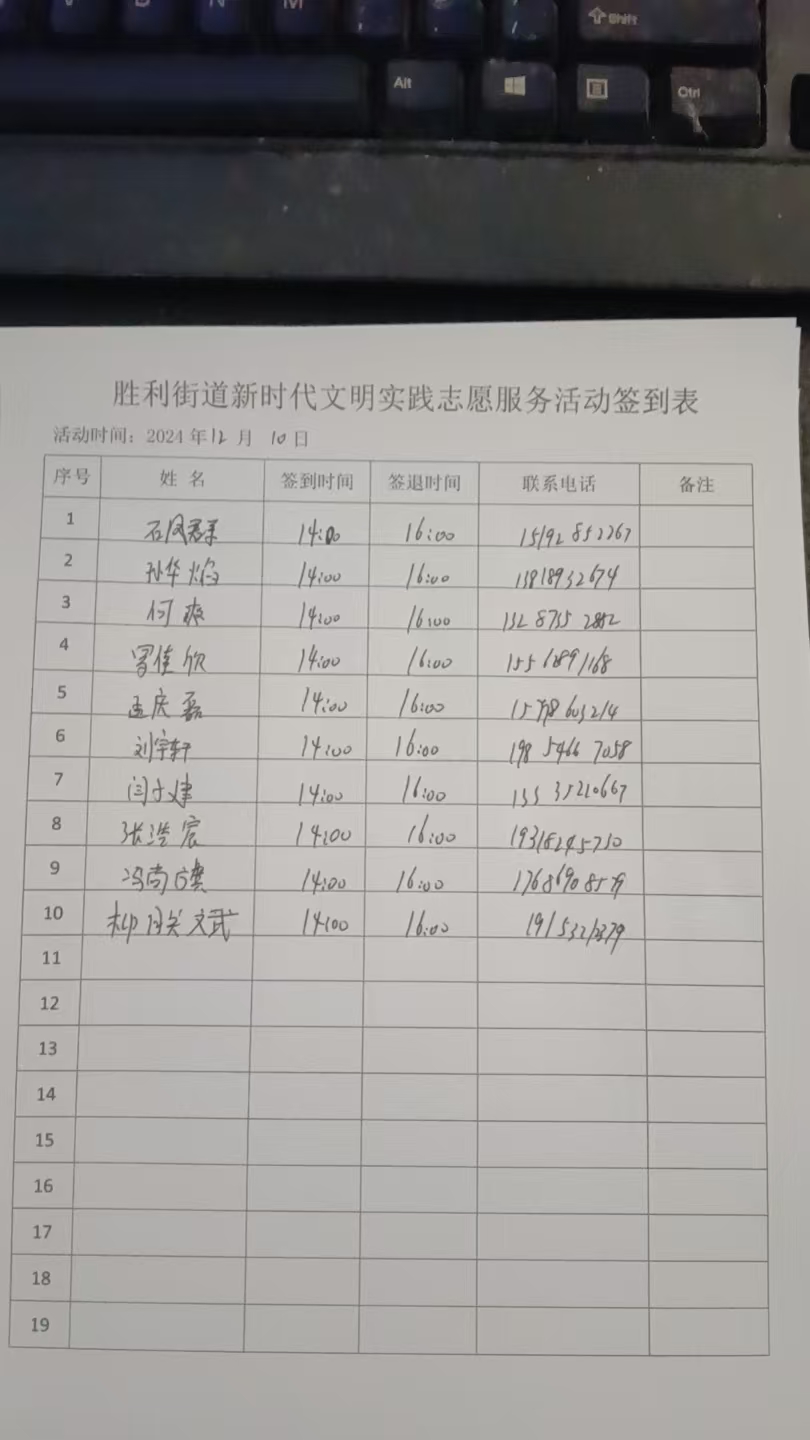 V B N M
Shift
Alt Ctrl
胜利街道新时代文明实践志愿服务活动签到表
活动时间：2024 年 12 月 10 日
序号 姓 名 签到时间 签退时间 联系电话 备注
1 石凤群 14:00 16:00 15192852267
2 孙华焰 14:00 16:00 13818932674
3 何爽 14:00 16:00 132 8735 2882
4 罗佳欣 14:00 16:00 155 6289/168
5 孟庆磊 14:00 16:00
6 刘宇轩 14:00 16:00 198 5466 7058
7 闫子建 14:00 16:00 133 35210667
8 张浩宸 14:00 16:00 19318245730
9 冯尚 14:00 16:00 17686908579
10 柳 文武 14:00 16:00
11
12
13
14
15
16
17
18
19